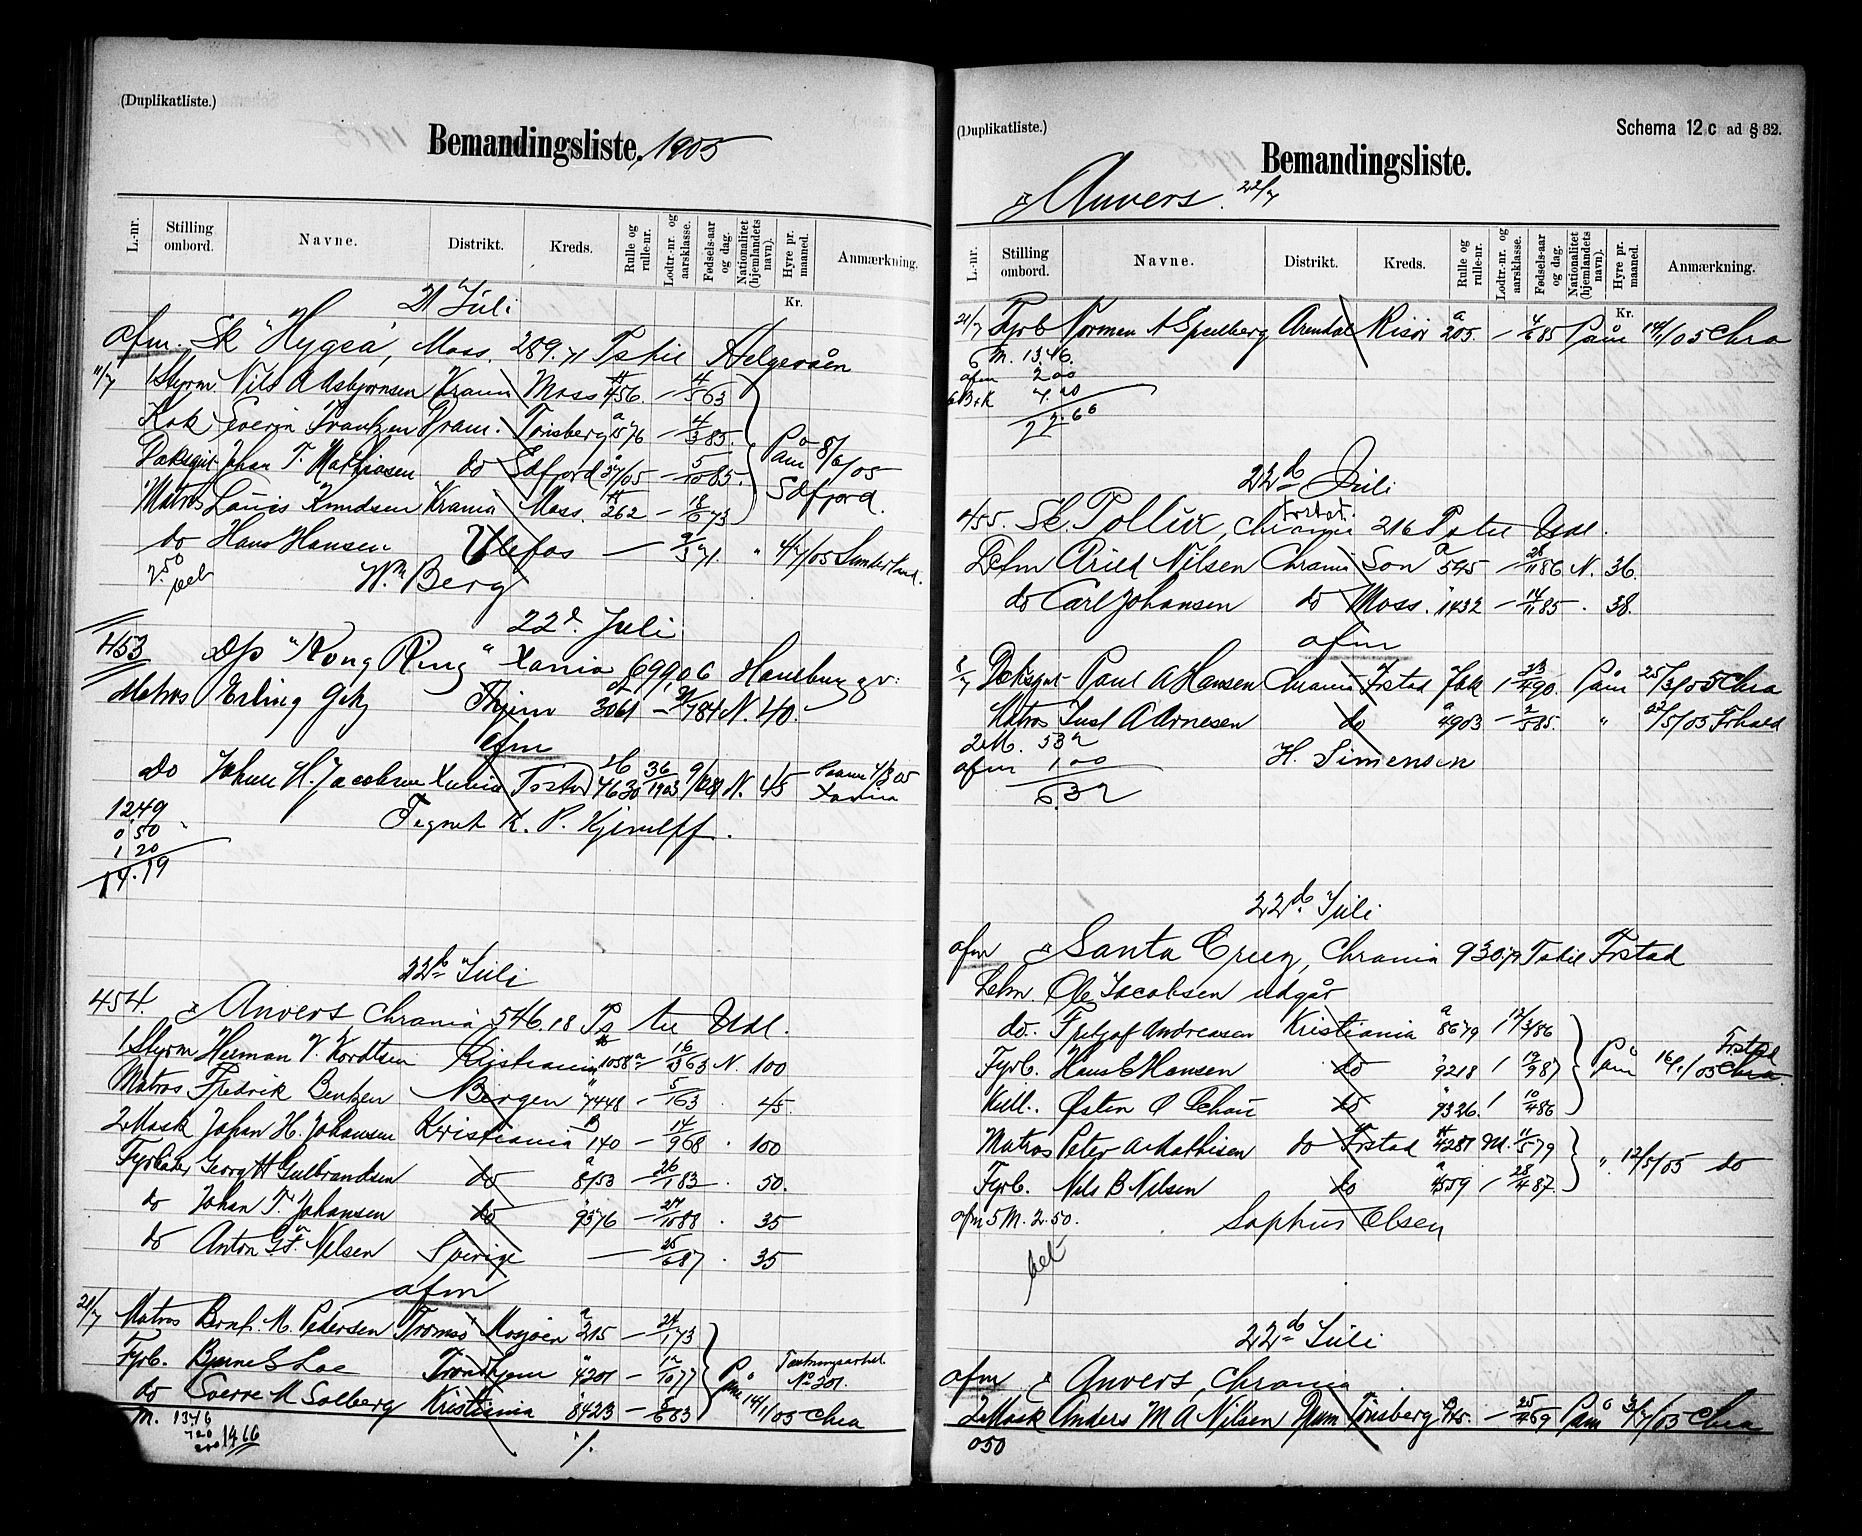 (Duplikatliste.)
Bemandingsliste, 1905
L.-nr. Stilling ombord. Navne. Distrikt. Kreds. Rulle og rulle-nr. Lodtr.-nr. og aarsklasse. Fødsels-aar og dag. Nationalitet (hjemlandets navn). Hyre pr. maaned. Anmærkning.
Kr.
21 Juli
afm. Sk "Hygea", Moss. 289.71 Ts til Helgeroen
11/7 1 Styrm Nils A Asbjørnsen Krania Moss 456 — 4/5 63
Kok Sverin Frantzen Dram. Tønsberg a 576 — 4/3 85
Dæksgut Johan T. Mathiasen do Sdfjord 37/05 — 5/10 85 Påm 8/6/05
Matros Louis Knudsen Krania Moss. 262 — 18/6 73 Sdfjord.
do Hans Hansen Ulefos — 9/3 71. " 4/7/05 Sunderland.
2.50 bet Wm Berg
22d. Juli
453 D/S "Kong Ring" Xania 699,06 Hamburg gv:
Matros Erling Getz Thjem 3061 — 784 N. 40.
afm
do Johan H. Jacobsen Xania Fstad 4630 36/1903 9/12 81 N. 45 Paam 4/3 05 Xania
12.49
0.50 Tegnet K. P. Kjerulff.
1 20
14.19
22de Juli
454. D Anvers Chrania 546.18 Ts til Udl.
1 Styrm Herman V. Kordtsen Kristiania 1058 a — 16/3 63 N. 100
Matros Fredrik Bentzen Bergen " 7448 — 5/1 63 . 45.
2 Mask Johan H. Johansen Kristiania B 140 — 14/9 68 . 100
Fyrbøder Georg H Gulbrandsen do a 8153 — 26/1 83 . 50.
do Johan T. Johansen do " 9376 — 27/10 88 . 35
do Anton G. F. Nilsen Sverige — 25/6 87 . 35
afm
21/7 Matros Bernh. M. Pedersen Tromsø Mosjøen a 215 — 24/1 73
Fyrb. Bjarne S Loe Trondhjem " 4201 — 12/10 77 Påm
No 201.
do Sverre M Solberg Kristiania 8423 — 5/6 83 14/1/05 Chra
M. 1346
1466
%.
(Duplikatliste.)
Schema 12 c ad § 32.
Bemandingsliste.
D Anvers. 22/7
L.-nr. Stilling ombord. Navne. Distrikt. Kreds. Rulle og rulle-nr. Lodtr.-nr. og aarsklasse. Fødsels-aar og dag. Nationalitet (hjemlandets navn). Hyre pr. maaned. Anmærkning.
Kr.
21/7 Fyrb Norman A Speelberg Arendal Risør a 205. — 4/6 85 Påm 14/1/05 Chra
6 M. 13.46.
afm 2 00
6 B.k 7.20
22.66
22de Juli
455. Sk. Pollux, Chrania Frstad. 216 Ts til Udl.
Lefm Arild Nilsen Chrania Son a 595 — 28/11 86 N. 36.
do Carl Johansen do Moss. " 1432 — 14/11 85 . 38.
afm
8/7 Dæksgut Paul A Hansen Chrania Frstad Jak 1 23/4 90. Påm 25/3/05 Chra
Matros Just A Arnesen do " 4903 — 2/5 85. " 22/5/05 Frhald
2 M. 5 32 H. Simensen
afm 1 00
6.32
22de Juli
afm D Santa Cruz, Chrania 930,79 Ts til Frstad
Lefm. Ole Jacobsen udgår
do. Fritjof Andreasen Kristiania a 8679 1 12/3/86
Fyrb. Hans E Hansen do " 9218 1 19/9 87 Påm 16/1/05 Frstad Chra
Kull. Østen O Schou do " 9326. 1 10/4 86
Matros Peter A Mathisen do Frstad 4281 M. 11/5 79
Fyrb. Nils B Nilsen do a 4559 1 28/4 87. " 12/5/05 do
afm 5 M. 2.50. Sophus Olsen
bet
22de Juli
afm D Anvers, Chrania
2 Mask Anders M A Nilsen Dram Tønsberg 45. — 25/4 69 Påm 3/7/05 Chra
050